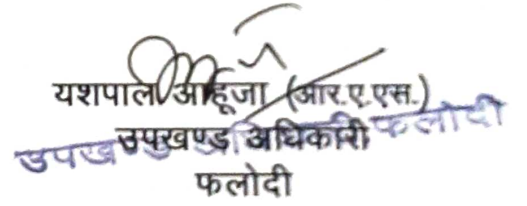 यशपाल आहूजा (आर.ए.एस.)
उपखण्ड अधिकारी
उपखण्ड अधिकारी फलोदी
फलोदी